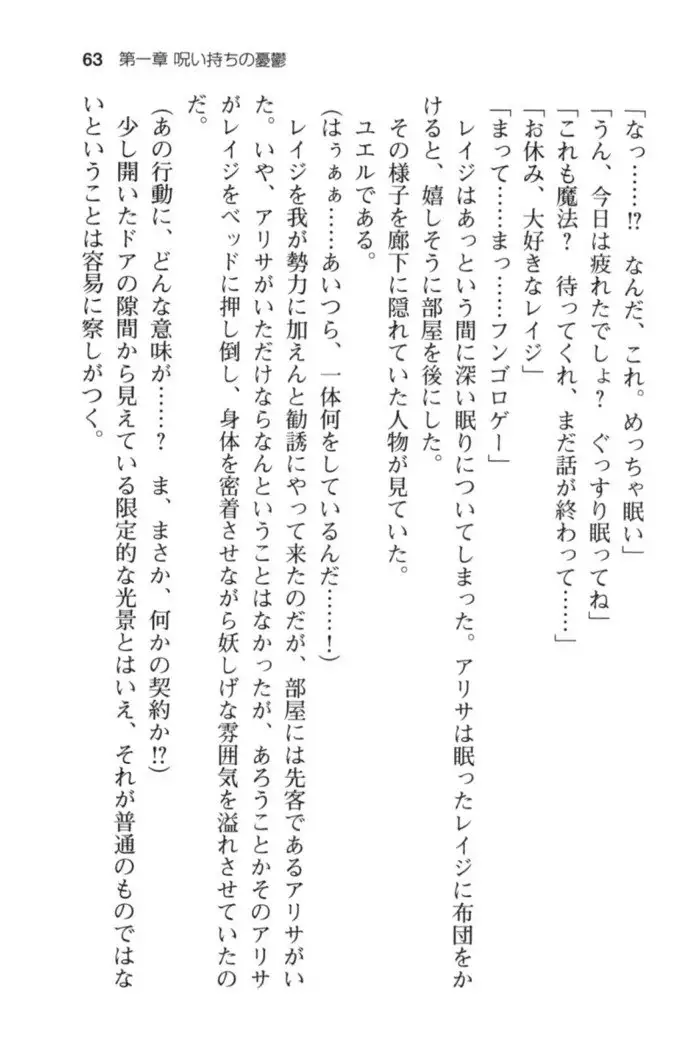 63 第一章 呪い持ちの憂鬱
「なっ……!? なんだ、これ。めっちゃ眠い」
「うん、今日は疲れたでしょ? ぐっすり眠ってね」
「これも魔法? 待ってくれ、まだ話が終わって……」
「お休み、大好きなレイジ」
「まって……まっ……フンゴロゲー」
レイジはあっという間に深い眠りについてしまった。アリサは眠ったレイジに布団をか
けると、嬉しそうに部屋を後にした。
その様子を廊下に隠れていた人物が見ていた。
ユエルである。
(はぅぁぁ……あいつら、一体何をしているんだ……!)
レイジを我が勢力に加えんと勧誘にやって来たのだが、部屋には先客であるアリサがい
た。いや、アリサがいただけならなんということはなかったが、あろうことかそのアリサ
がレイジをベッドに押し倒し、身体を密着させながら妖しげな雰囲気を溢れさせていたの
だ。
(あの行動に、どんな意味が……? ま、まさか、何かの契約か!?)
少し開いたドアの隙間から見えている限定的な光景とはいえ、それが普通のものではな
いということは容易に察しがつく。